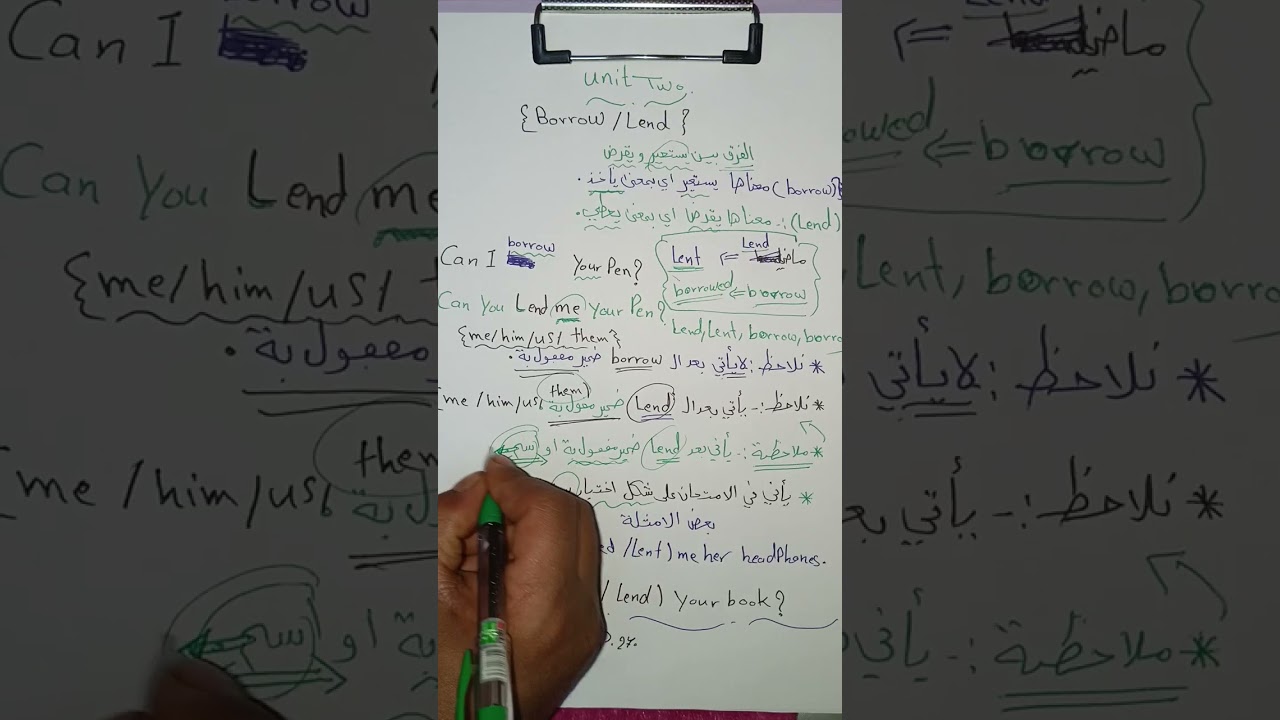 unit Two.
{Borrow / Lend}
الفرق بين يستعير و يقرض
(borrow) معناها يستعير اي بمعنى يأخذ.
(Lend) :- معناها يقرض اي بمعنى يعطي.
Can I borrow Your Pen?
ماضي
Lend => Lent
borrow => borrowed
Can You Lend me Your Pen?
Lend, Lent, borrow, borro
{me/him/us/ them}
* نلاحظ : لايأتي بعد ال borrow ضمير مفعول بة.
* نلاحظ :- يأتي بعد ال Lend ضمير مفعول بة me /him/us/ them
* ملاحظة :- يأتي بعد Lend ضمير مفعول بة او اسم
* يأتي في الامتحان على شكل اختيار
بعض الامثلة
ed /Lent) me her headphones.
/ Lend) Your book?
P. 27.